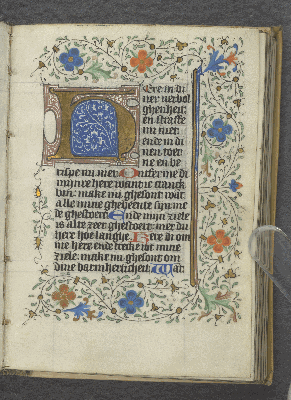 Ere in di
ner verbol
ghenheit
en straffe
mi niet
ende in di
nen toer
ne en be
rispe mi niet Ontferme di
mijnre here want ic cranck
bin make mi ghesont wat
alle mine ghebeente sijn ont
ghestoert Ende mijn ziele
is alte zeer ghestoert mer du
here hoe langhe Here di om
me here ende trecke wt mine
ziele make mi ghesont om
dine barmherticheit Wat